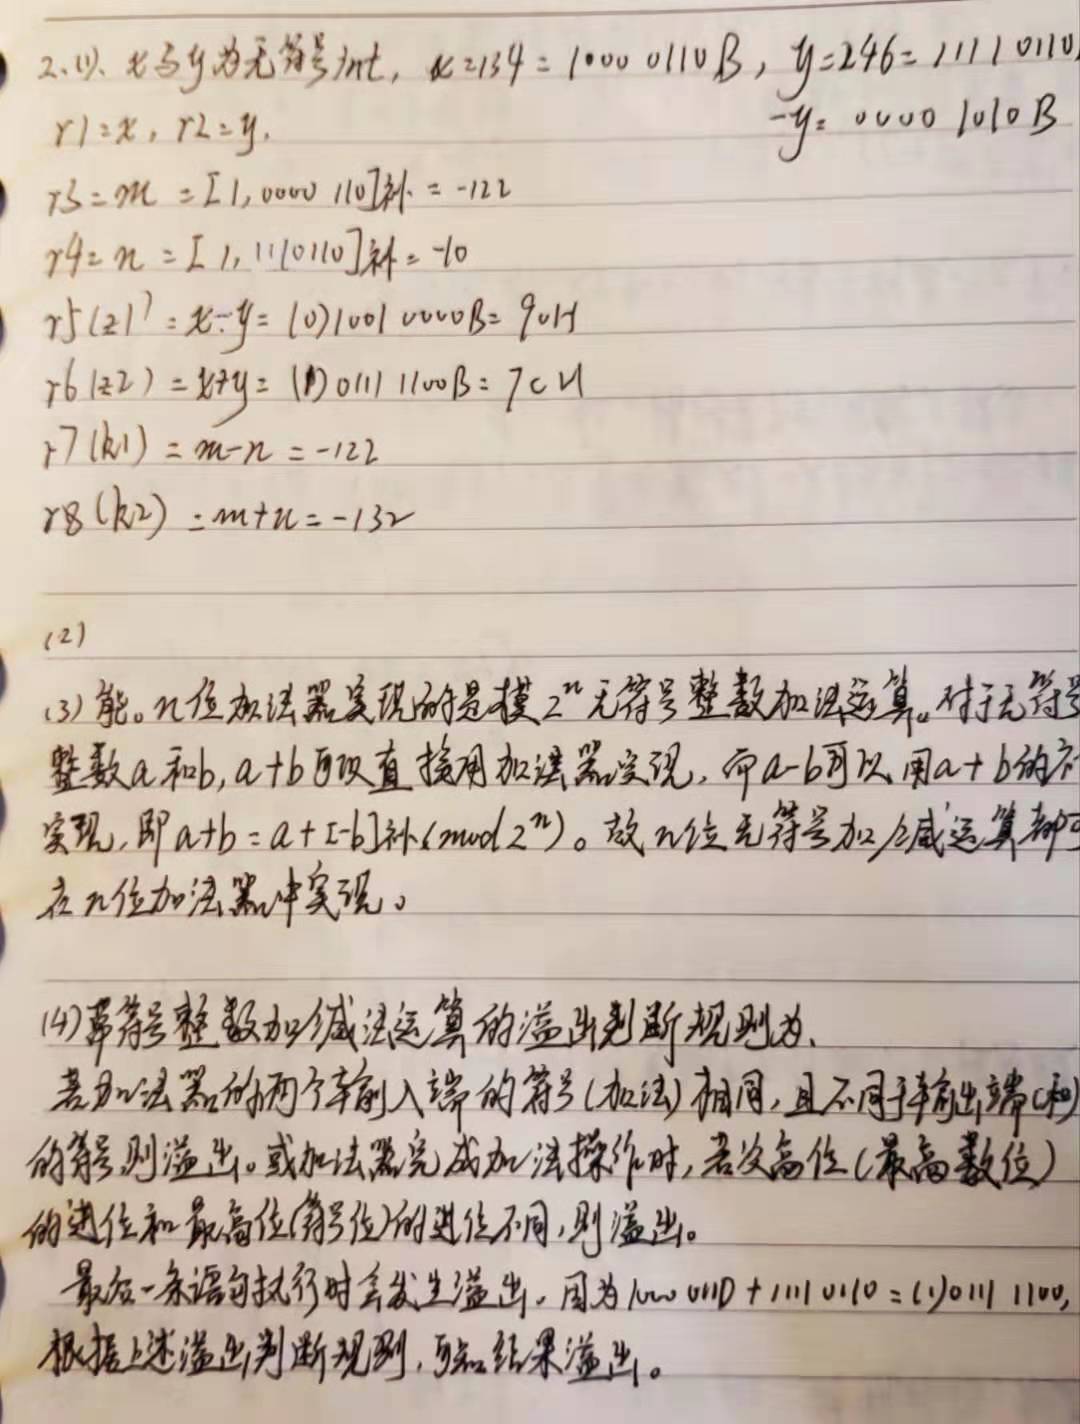 2.(1). x与y为无符号int, x=134=1000 0110B, y=246=1111 0110
r1=x, r2=y.
-y= 0000 1010B
r3=m=[1,0000 110]补=-122
r4=n=[1,1110110]补=-10
r5(z1)=x-y=(0)1001 0000B=90H
r6(z2)=x+y=(1)0111 1100B=7CH
r7(k1)=m-n=-122
r8(k2)=m+n=-132
(2)
(3)能。n位加法器实现的是模2ⁿ无符号整数加法运算。对于无符号
整数a和b, a+b可以直接用加法器实现, 而a-b可以用a+b的
实现, 即a+b=a+[-b]补(mod 2ⁿ)。故n位无符号加/减运算都可
在n位加法器中实现。
(4)带符号整数加/减法运算的溢出判断规则为,
若加法器的两个输入端的符号(加法)相同, 且不同于输出端(和)
的符号则溢出。或加法器完成加法操作时, 若次高位(最高数位)
的进位和最高位(符号位)的进位不同, 则溢出。
最后一条语句执行时会发生溢出, 因为1000 0110+1111 0110=(1)0111 1100,
根据上述溢出判断规则, 可知结果溢出。